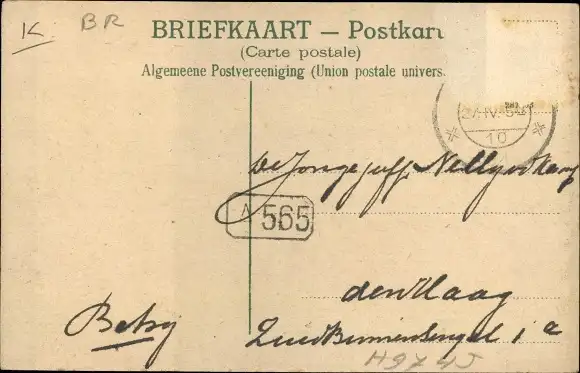 K BR
BRIEFKAART – Postkart
(Carte postale)
Algemeene Postvereeniging (Union postale univers.
27.IV.
10
De Jongejuff. Nelly vd Kamp
A 565
den Haag
Betsy
Zuid Binnensingel 1 a
H974J